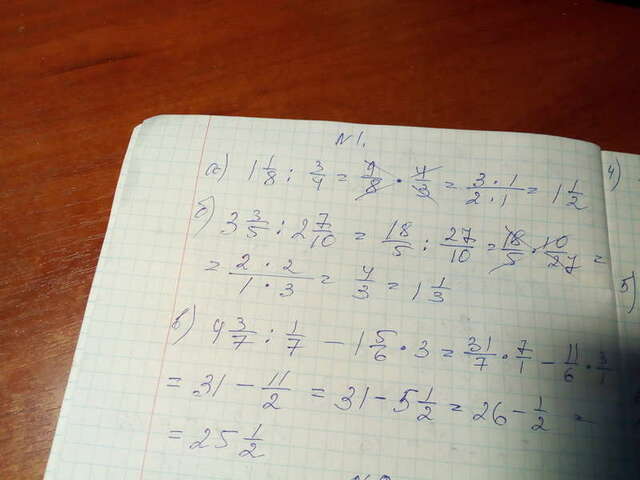 N1.
а) 1 1/8 : 3/4 = 9/8 · 4/3 = 3·1/2·1 = 1 1/2
б) 3 3/5 : 2 7/10 = 18/5 : 27/10 = 18/5 · 10/27 =
= 2·2/1·3 = 4/3 = 1 1/3
в) 4 3/7 : 1/7 - 1 5/6 · 3 = 31/7 · 7/1 - 11/6 · 3/1
= 31 - 11/2 = 31 - 5 1/2 = 26 - 1/2 =
= 25 1/2
4)
5)